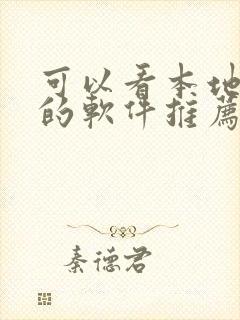 可以看本地
的軟件推薦
秦德君